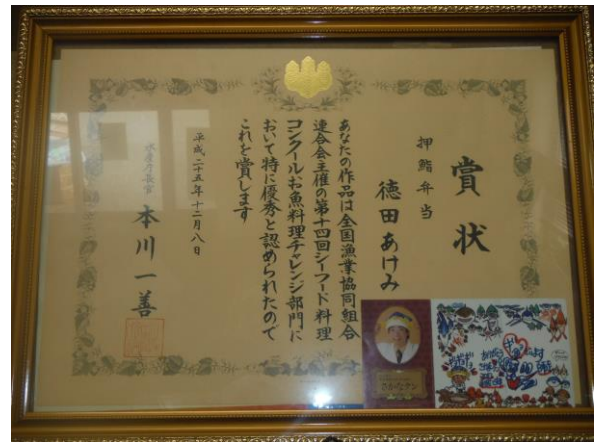 賞状
押鮨弁当
徳田あけみ
あなたの作品は全国漁業協同組合
連合会主催の第十四回シーフード料理
コンクールお魚料理チャレンジ部門に
おいて特に優秀と認められたので
これを賞します
平成二十五年十二月八日
水産庁長官
本川一善
さかなクン